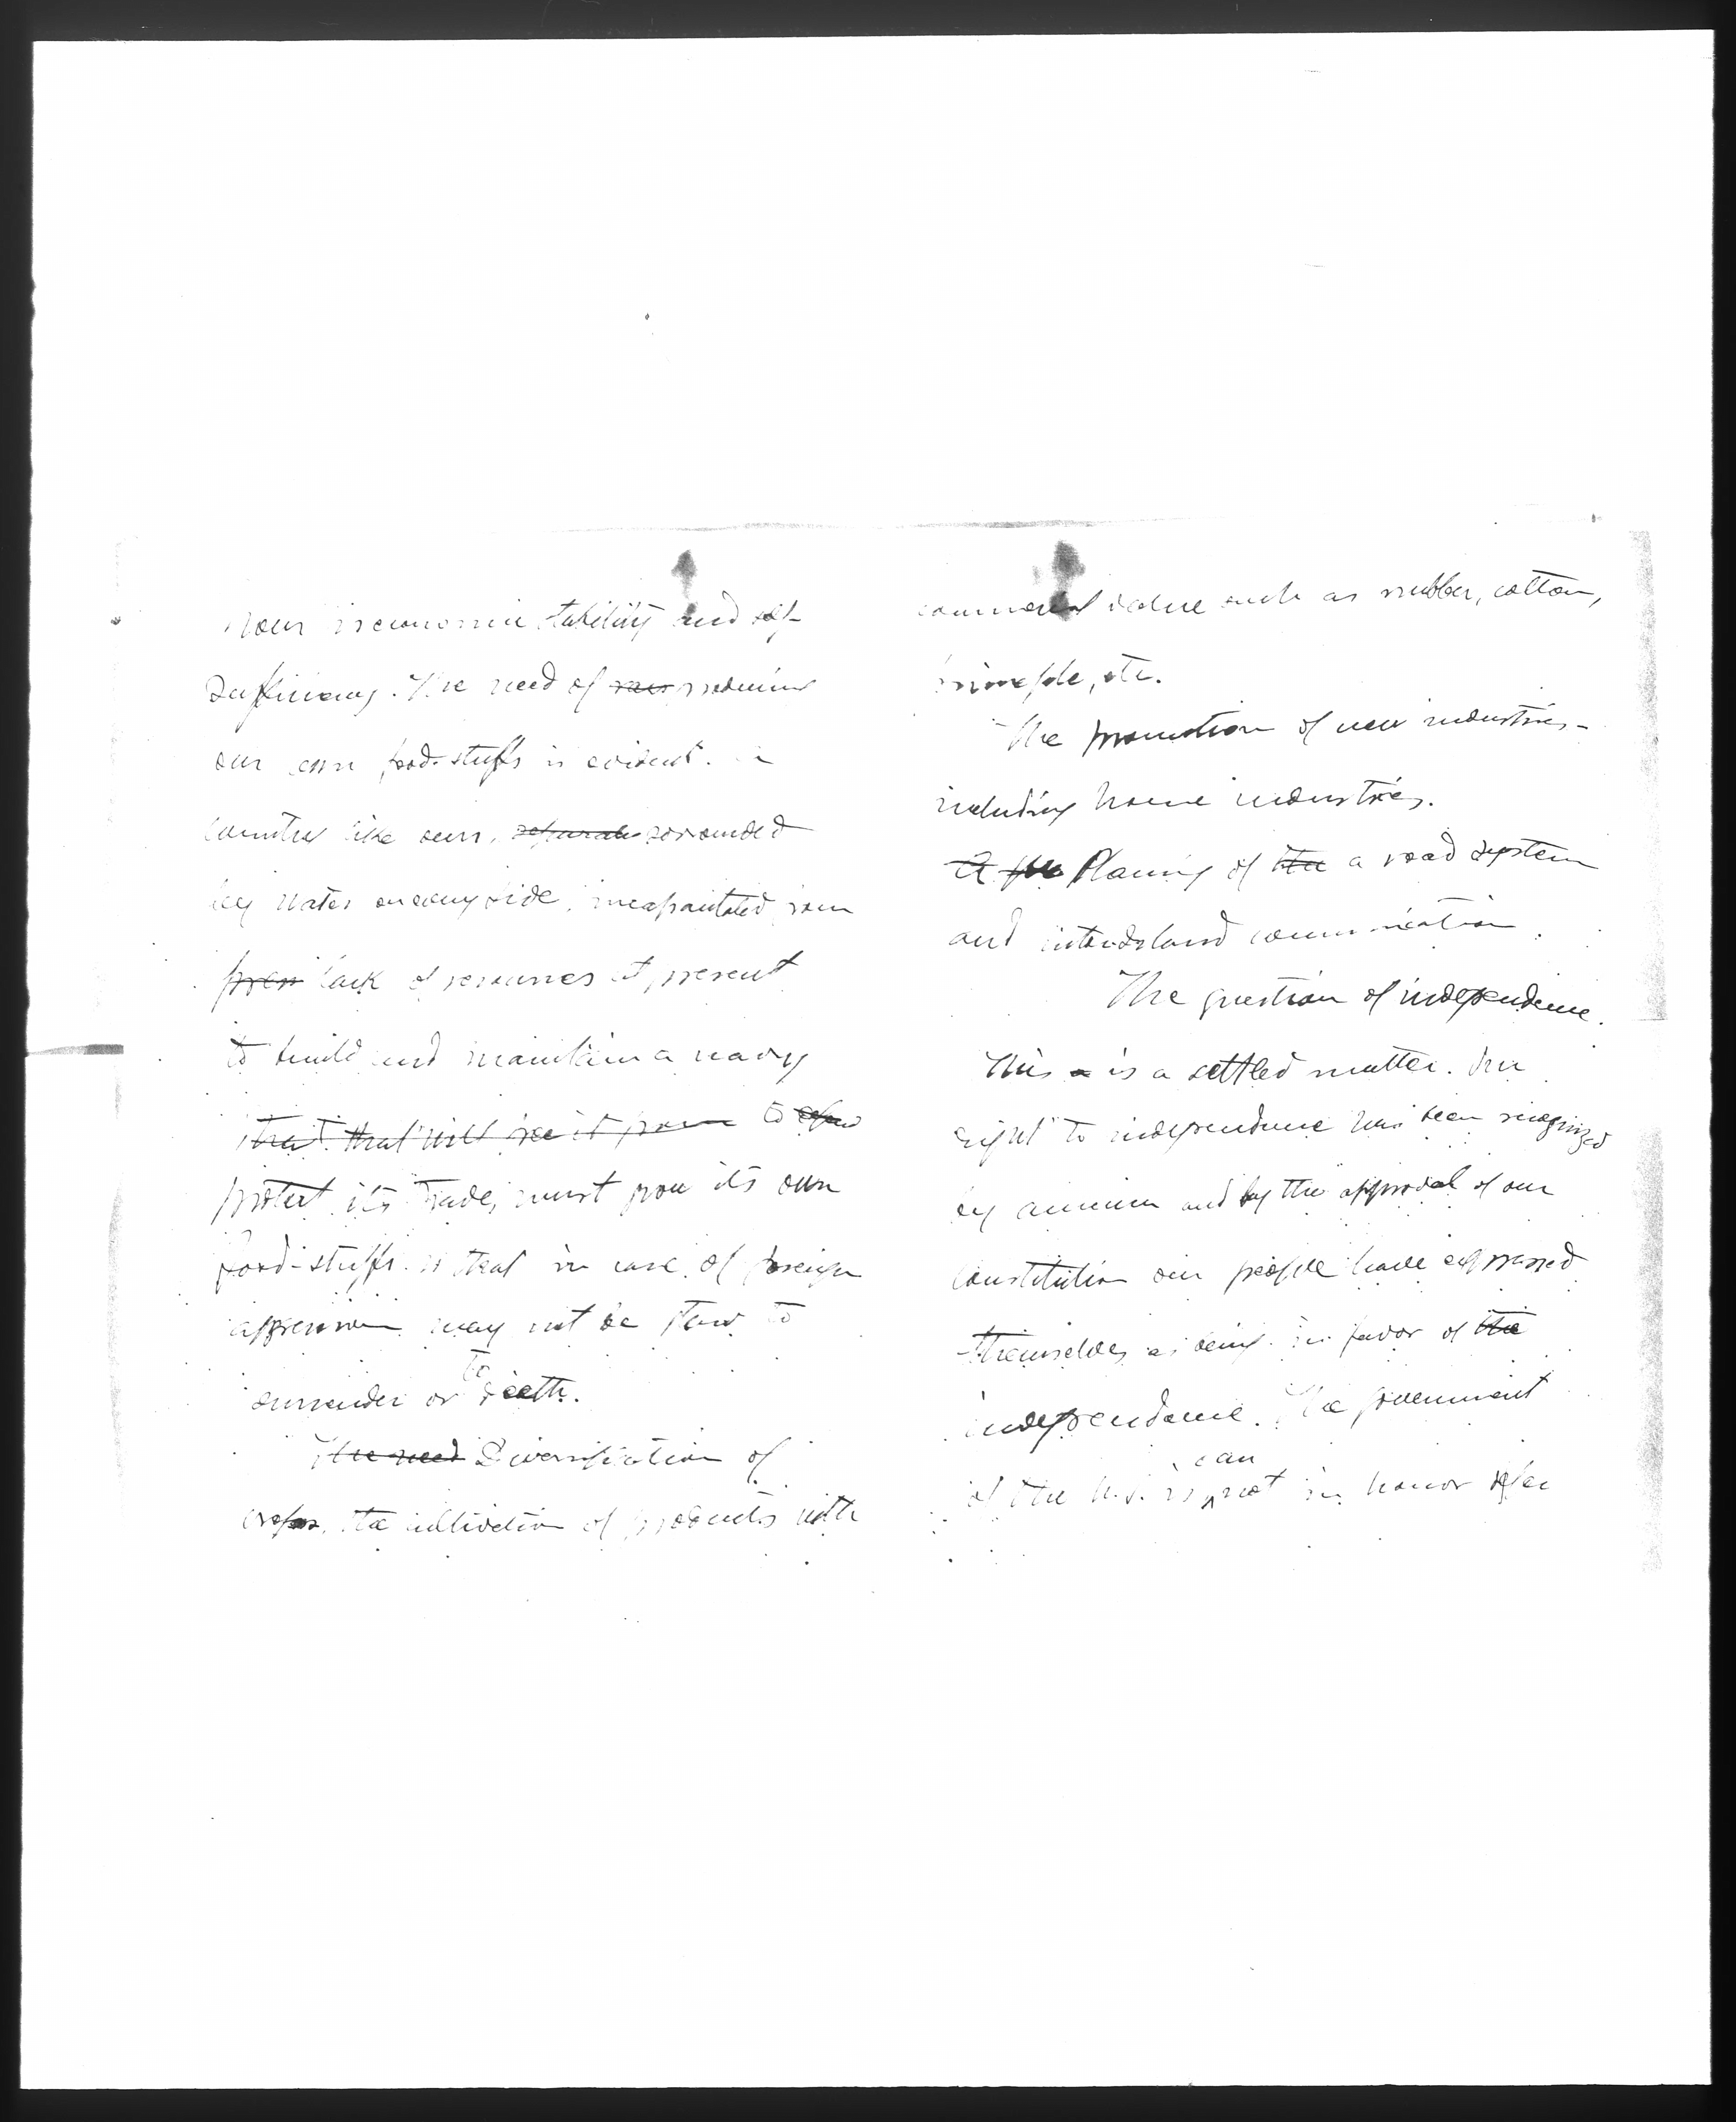 economic stability and self-
sufficiency. The need of producing
our own food-stuffs is evident. a
country like ours, separate sorrounded
by water on every side, incapacitated from
from lack of resources at present
to build and maintain a navy
that will to
protect its trade, must grow its own
food-stuffs so that in case of foreign
aggression may not be to
to
surrender or death.
The need Diversification of
crops, the cultivation of products with
commercial value such as rubber, cotton,
pineapple, etc.
The promotion of new industries-
including home industries.
Planing of the a road system
and interisland communication.
The question of independence.
This is a settled matter. Our
right to independence has been recognized
by America and by the approval of our
constitution our people have expressed
themselves as being in favor of the
independence. The government
can
of the U.S. not in honor